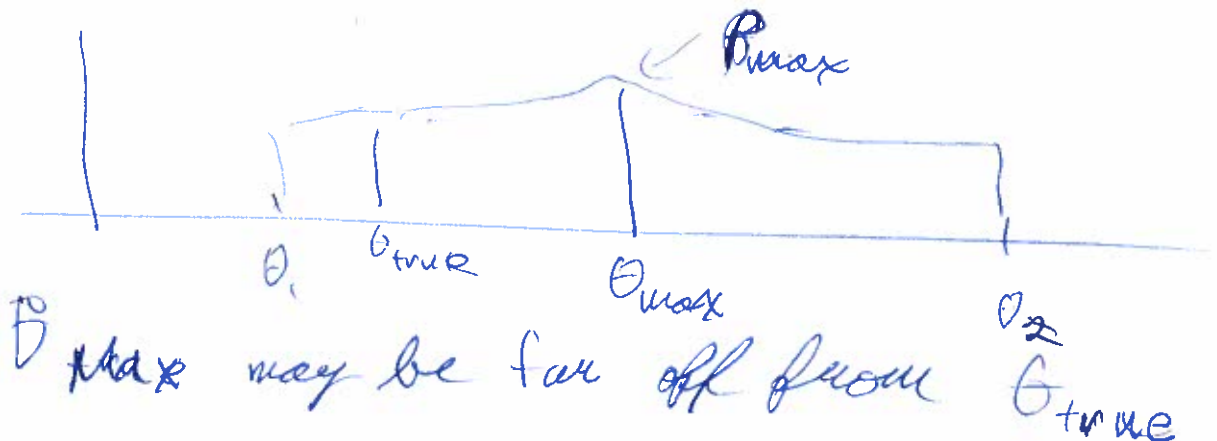 P_max
θ₁ θ_true θ_max θ₂
θ_max may be far off from θ_true